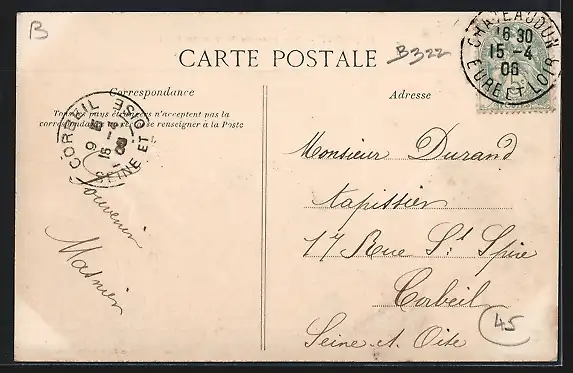 B
CARTE POSTALE
B322
CHATEAUDUN
16 30
15 - 4
06
EURE ET LOIR
Correspondance
Tous les pays étrangers n'acceptent pas la
correspondance au recto se renseigner à la Poste
Adresse
CORBEIL
15
SEINE ET OISE
Souvenir
Masnier
Monsieur Durand
tapissier
17 Rue St Spire
Corbeil
Seine et Oise
45